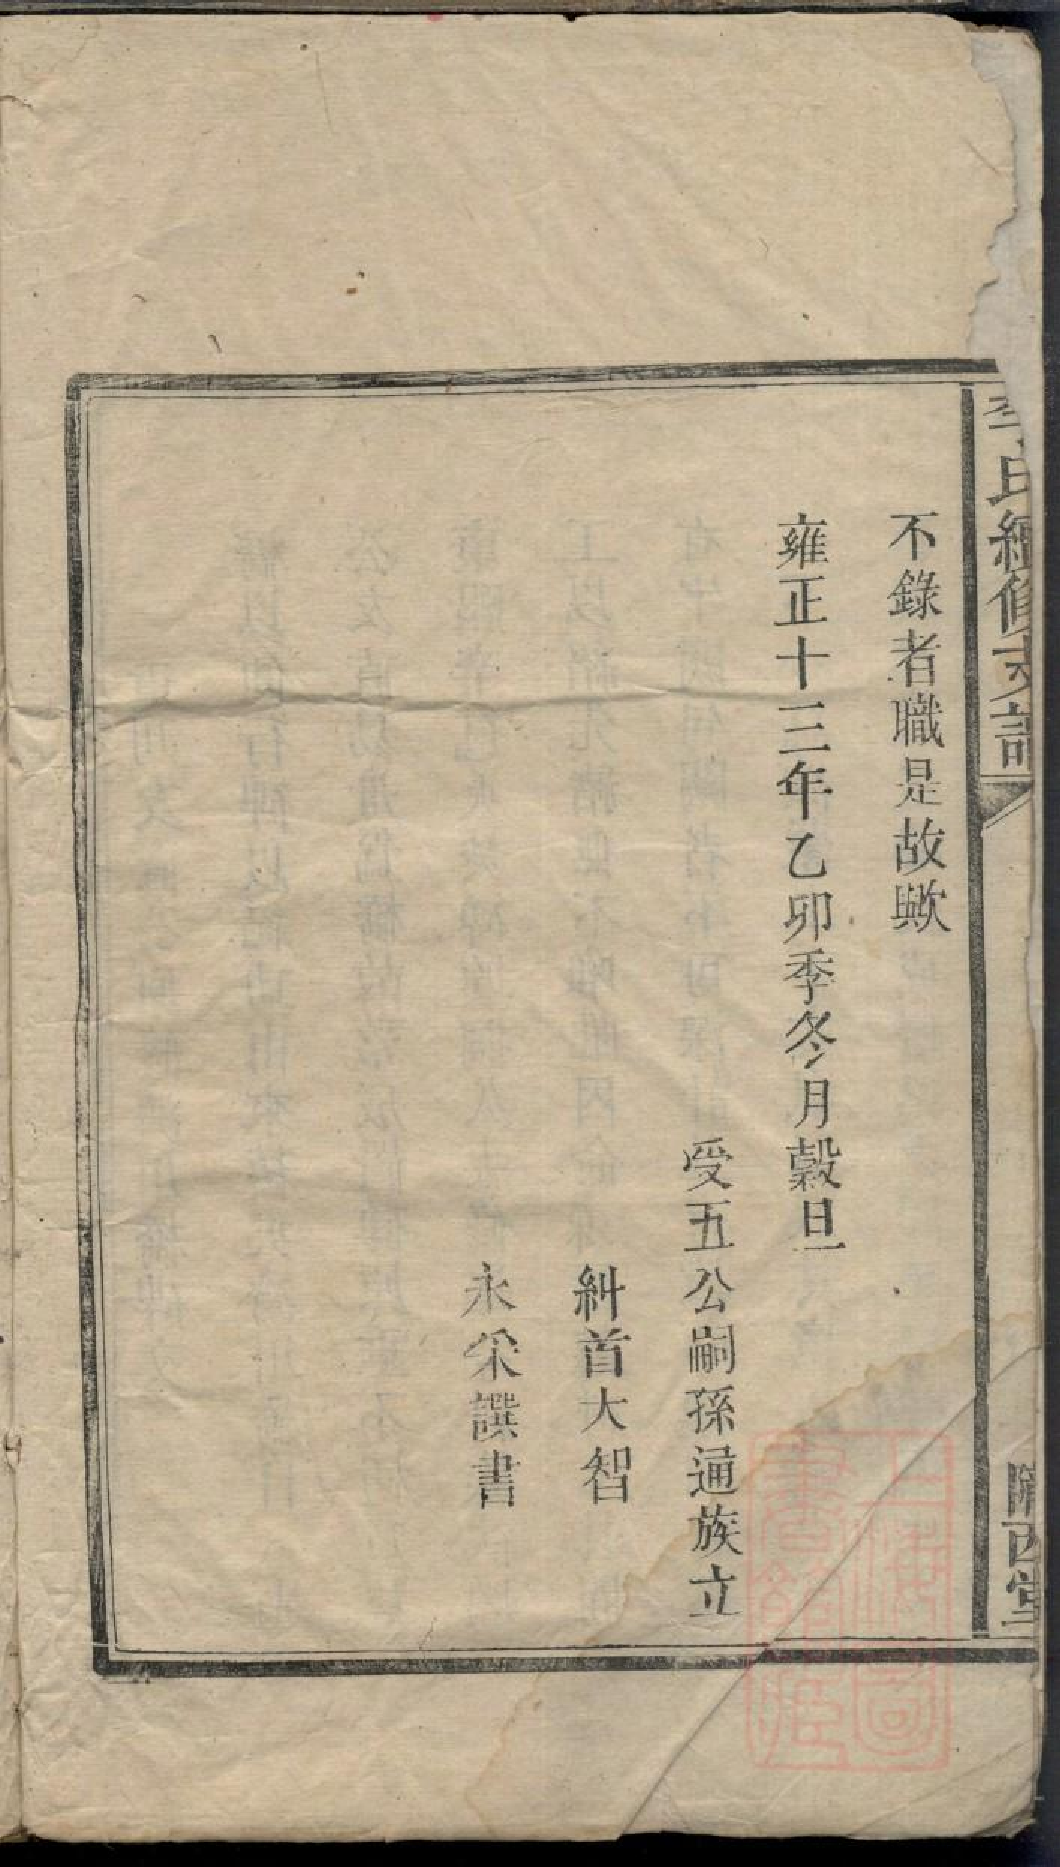 不錄者職是故歟
雍正十三年乙卯季冬月穀旦
受五公嗣孫通族立
糾首大智
永采譔書
李氏續修支譜
隴西堂
上海圖書館藏